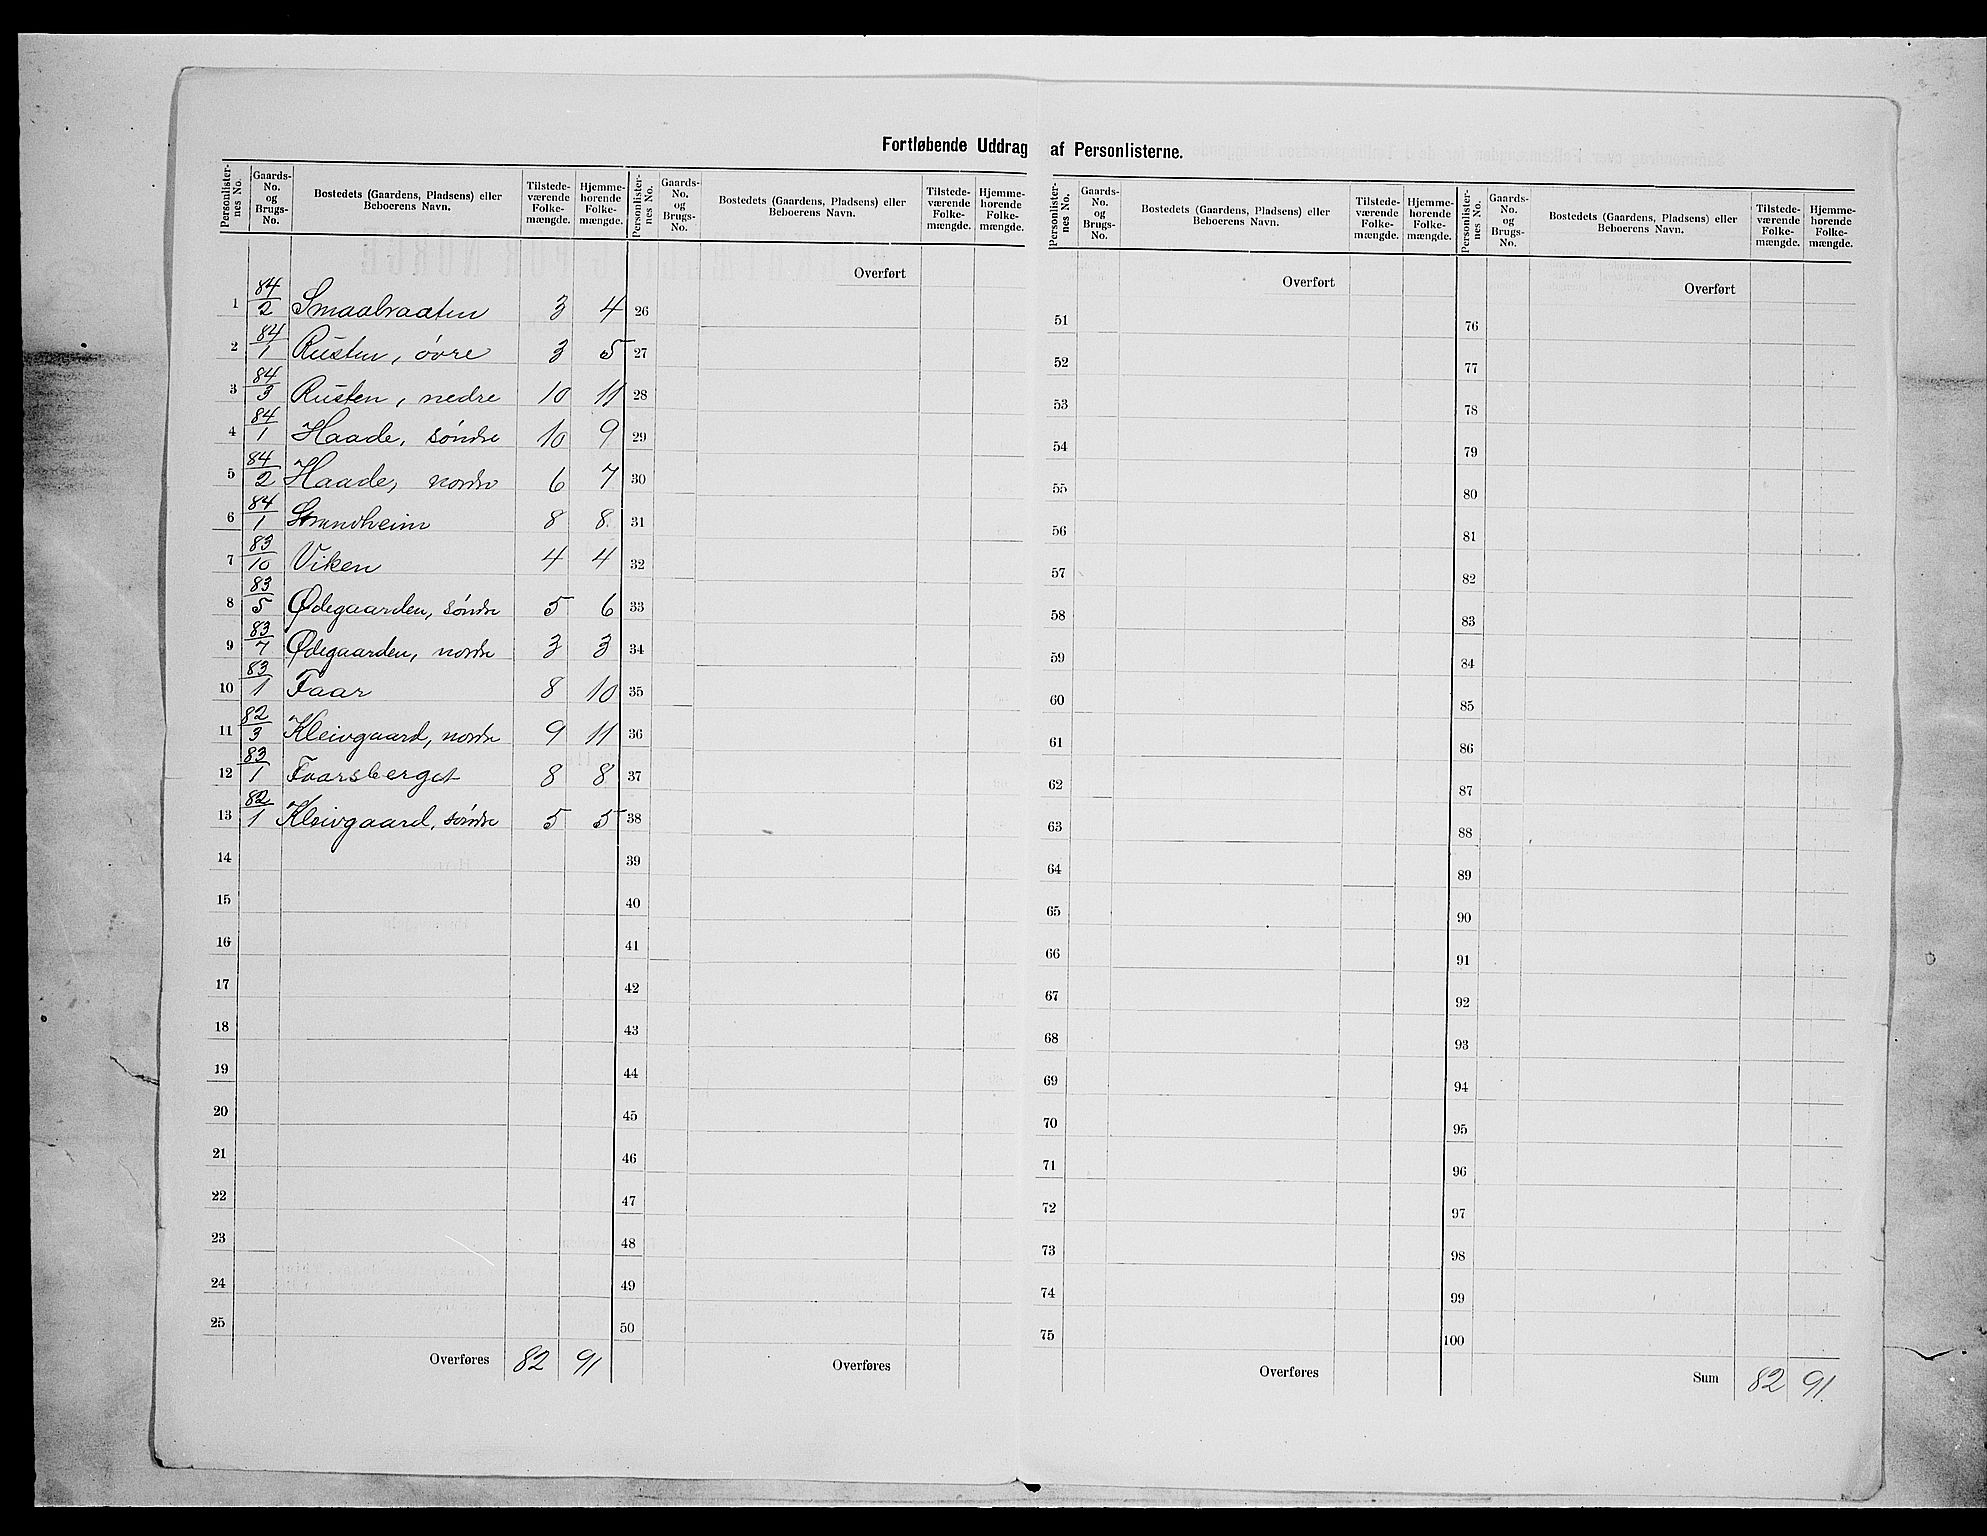 Fortløbende Uddrag af Personlisterne.
Personlisternes No. | Gaards-No. og Brugs-No. | Bostedets (Gaardens, Pladsens) eller Beboerens Navn. | Tilstedeværende Folkemængde. | Hjemmehørende Folkemængde. | Personlisternes No. | Gaards-No. og Brugs-No. | Bostedets (Gaardens, Pladsens) eller Beboerens Navn. | Tilstedeværende Folkemængde. | Hjemmehørende Folkemængde. | Personlisternes No. | Gaards-No. og Brugs-No. | Bostedets (Gaardens, Pladsens) eller Beboerens Navn. | Tilstedeværende Folkemængde. | Hjemmehørende Folkemængde. | Personlisternes No. | Gaards-No. og Brugs-No. | Bostedets (Gaardens, Pladsens) eller Beboerens Navn. | Tilstedeværende Folkemængde. | Hjemmehørende Folkemængde.
Overført Overført Overført
1 84/2 Smaabraaten 3 4 26 51 76
2 84/1 Rusten, øvre 3 5 27 52 77
3 84/3 Rusten, nedre 10 11 28 53 78
4 84/1 Haade, søndre 10 9 29 54 79
5 84/2 Haade, nordre 6 7 30 55 80
6 84/1 Strandheim 8 8 31 56 81
7 83/10 Viken 4 4 32 57 82
8 83/5 Ødegaarden, søndre 5 6 33 58 83
9 83/7 Ødegaarden, nordre 3 3 34 59 84
10 83/1 Faar 8 10 35 60 85
11 82/3 Kleivgaard, nordre 9 11 36 61 86
12 83/1 Faarsberget 8 8 37 62 87
13 82/1 Kleivgaard, søndre 5 5 38 63 88
14 39 64 89
15 40 65 90
16 41 66 91
17 42 67 92
18 43 68 93
19 44 69 94
20 45 70 95
21 46 71 96
22 47 72 97
23 48 73 98
24 49 74 99
25 50 75 100
Overføres 82 91 Overføres Overføres Sum 82 91.